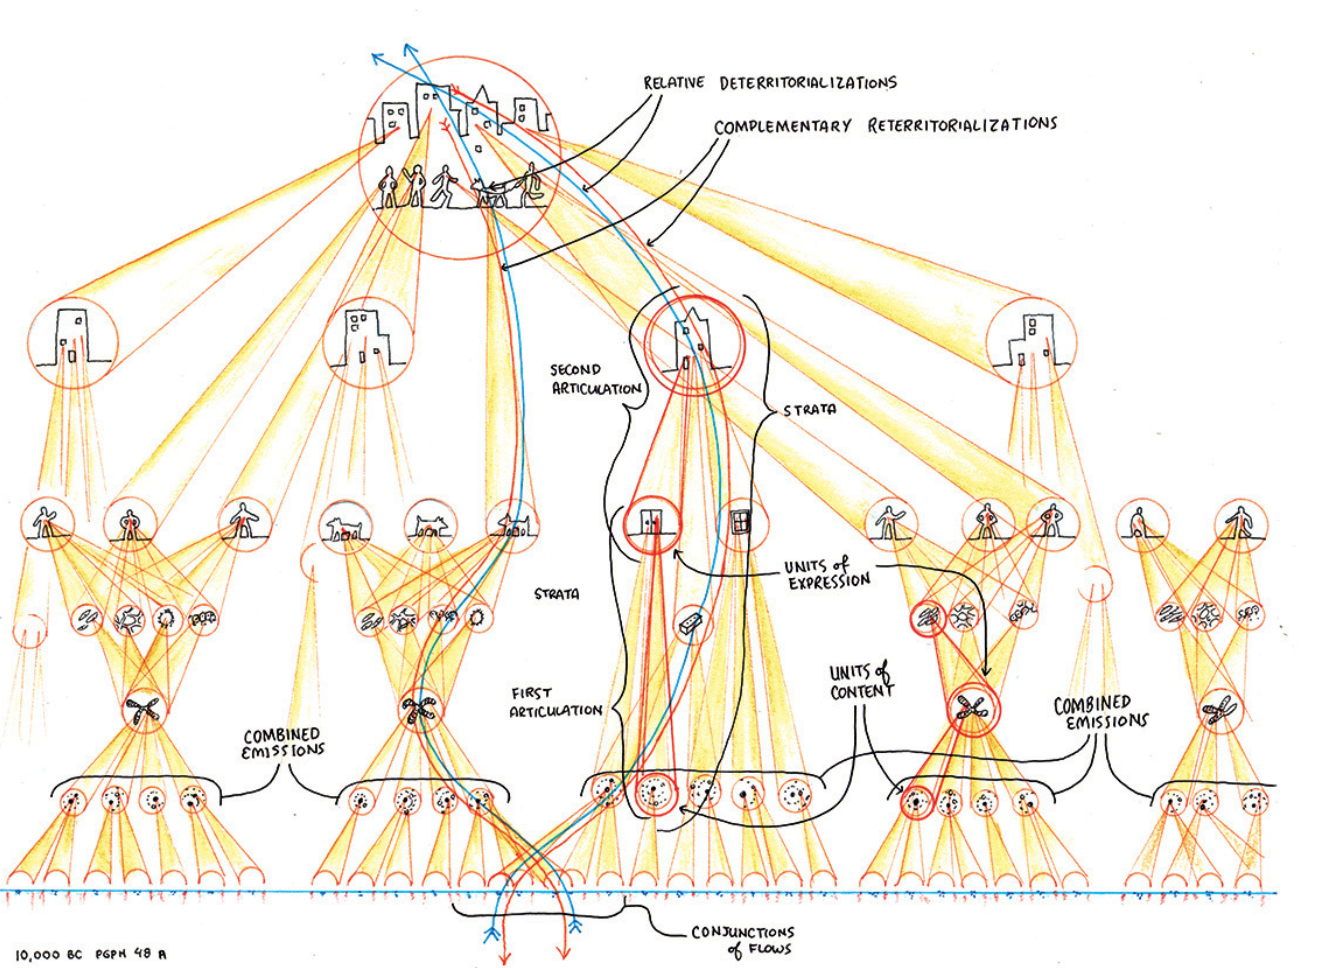 RELATIVE DETERRITORIALIZATIONS
COMPLEMENTARY RETERRITORIALIZATIONS
SECOND
ARTICULATION
STRATA
UNITS of
EXPRESSION
STRATA
UNITS of
CONTENT
FIRST
ARTICULATION
COMBINED
EMISSIONS
COMBINED
EMISSIONS
CONJUNCTIONS
of FLOWS
10,000 BC PGPH 48 A